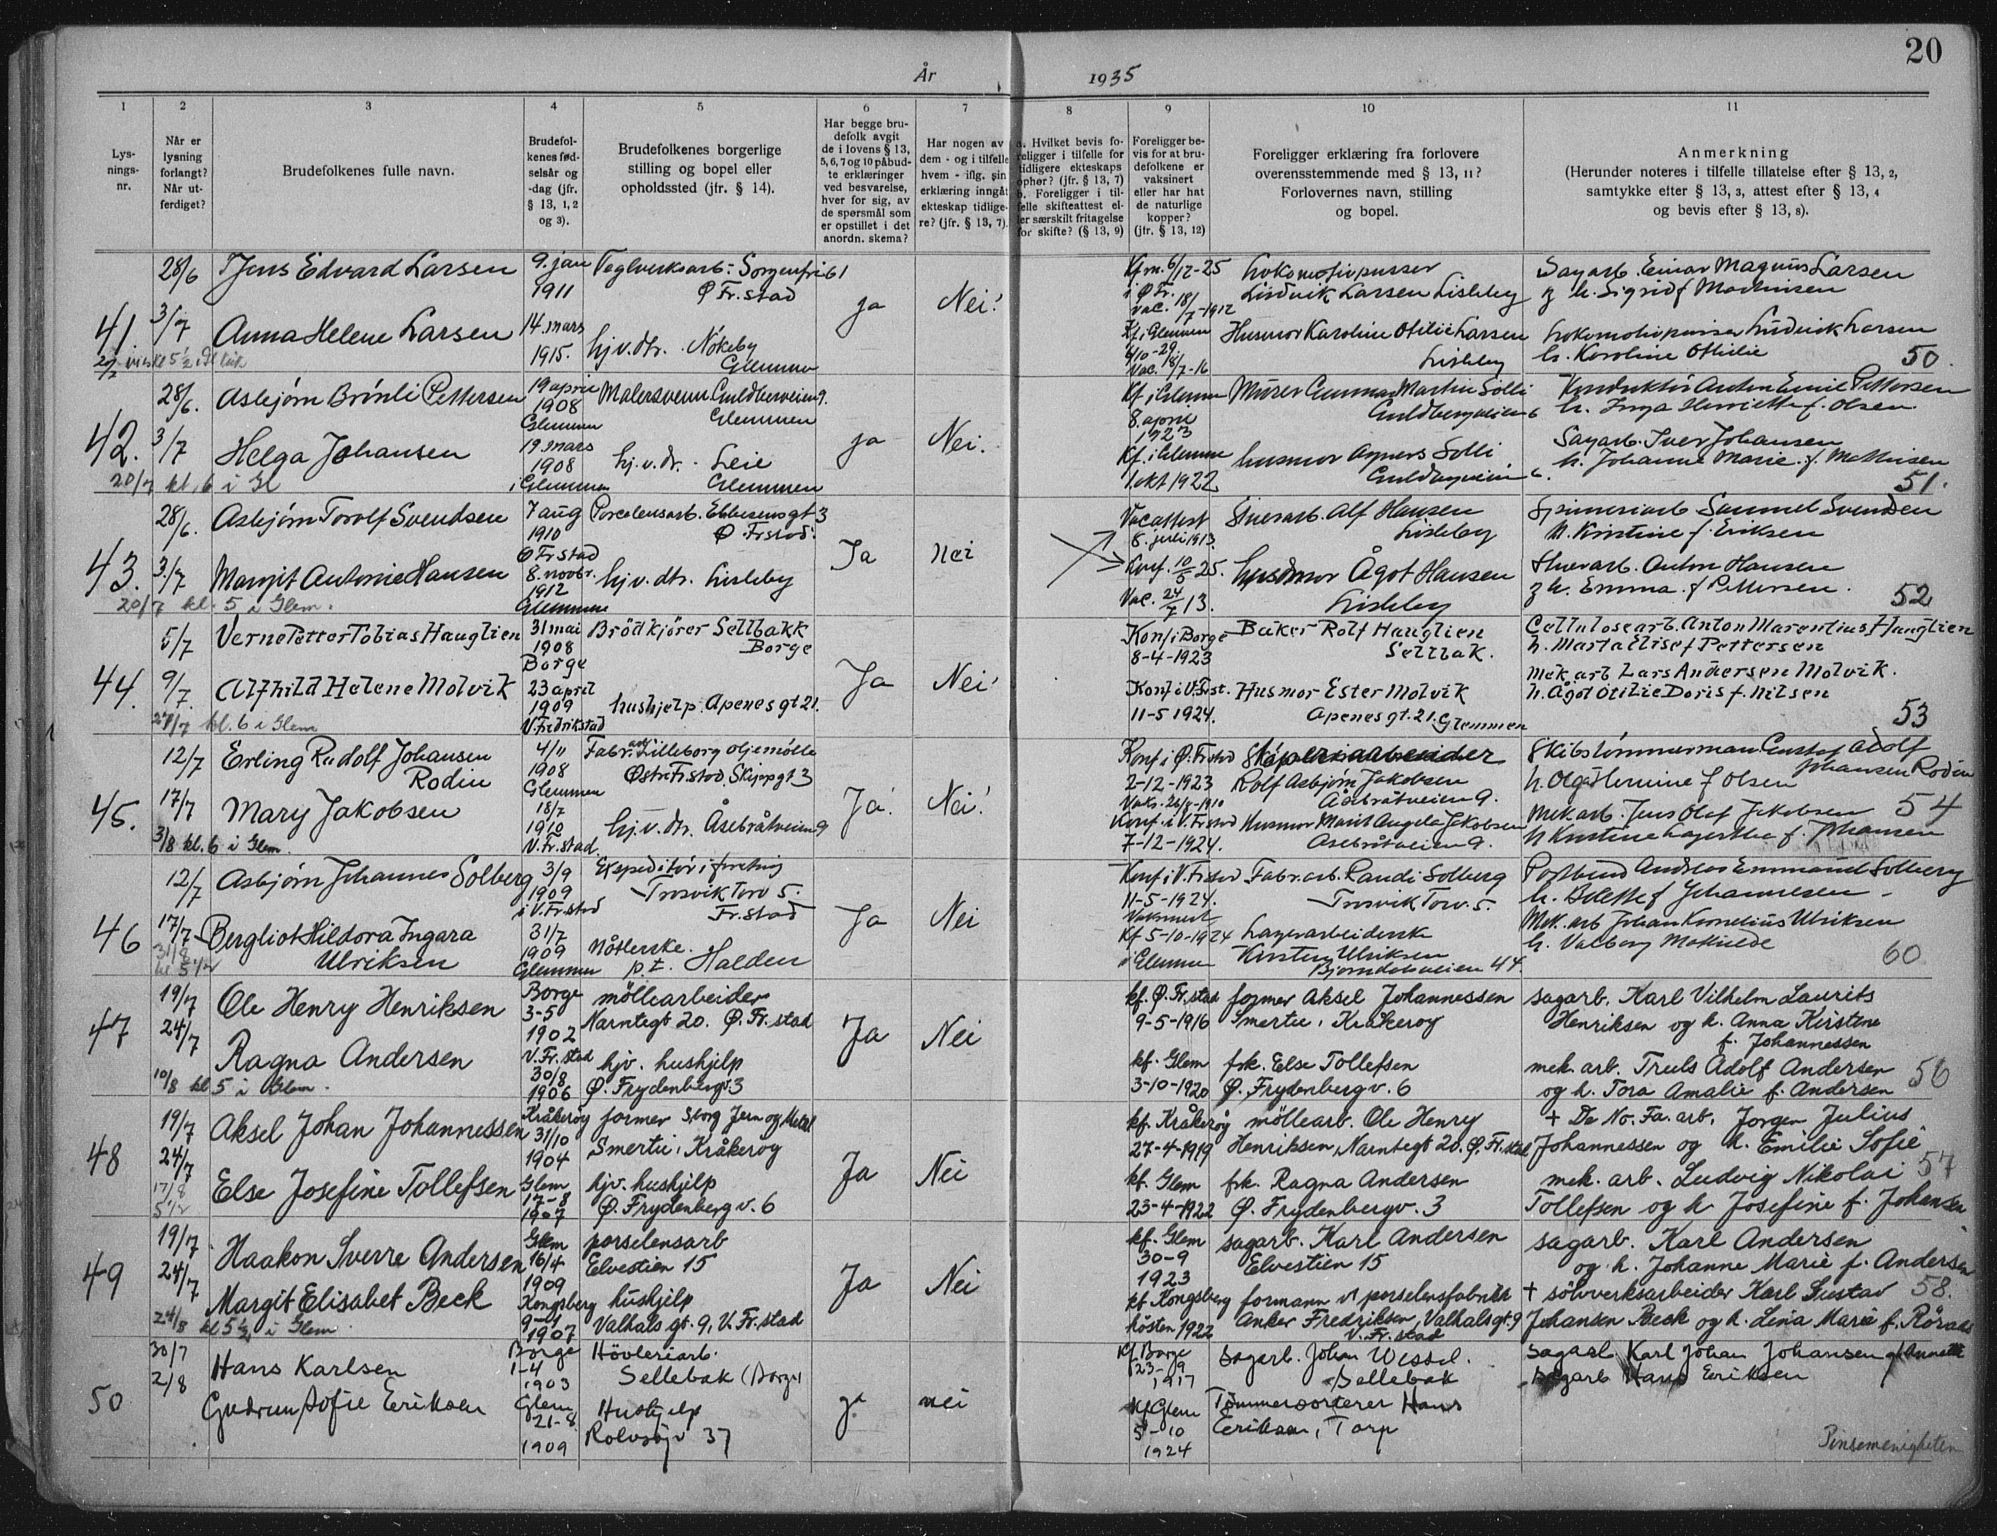 20
År 1935
1 2 3 4 5 6 7 8 9 10 11
Lys-
nings-
nr.
Når er
lysning
forlangt?
Når ut-
ferdiget?
Brudefolkenes fulle navn.
Brudefol-
kenes fød-
selsår og
-dag (jfr.
§ 13, 1, 2
og 3).
Brudefolkenes borgerlige
stilling og bopel eller
opholdssted (jfr. § 14).
Har begge bru-
defolk avgit
de i lovens § 13,
5, 6, 7 og 10 påbud-
te erklæringer
ved besvarelse,
hver for sig, av
de spørsmål som
er opstillet i det
anordn. skema?
Har nogen av
dem - og i tilfelle
hvem - iflg. sin
erklæring inngått
ekteskap tidlige-
re? (jfr. § 13, 7).
a. Hvilket bevis fo-
religger i tilfelle for
tidligere ekteskaps
ophør? (jfr. § 13, 7)
b. Foreligger i til-
felle skifteattest el-
ler særskilt fritagelse
for skifte? (§ 13, 9)
Foreligger be-
vis for at bru-
defolkene er
vaksinert
eller har hat
de naturlige
kopper?
(jfr. § 13, 12)
Foreligger erklæring fra forlovere
overensstemmende med § 13, 11?
Forlovernes navn, stilling
og bopel.
Anmerkning
(Herunder noteres i tilfelle tillatelse efter § 13, 2,
samtykke efter § 13, 3, attest efter § 13, 4
og bevis efter § 13, 8).
41
28/6
3/7
Jens Edvard Larsen
9. jan
1911
Teglverksarb. Sorgenfri 61
Ø Fr.stad
ja
Nei!
Kfm. 6/12-25
i Ø Fr.
Vac. 18/7-1912
Lokomotivpusser
Ludvik Larsen Lisleby
Sagarb. Einar Magnus Larsen
g h. Sigrid f Mathisen
Anna Helene Larsen
14. mars
1915.
hjv. dtr. Nøkeby
Glemmen
Kf i Glemmen
6/10-29
Vac. 18/7-16
Husmor Karoline Otilie Larsen
Lisleby
Lokomotivpusser Ludvik Larsen
h. Karoline Othilie
50.
42.
28/6.
3/7
Asbjørn Brønli Pettersen
19 april
1908
Glemmen
Malersvenn Guldbergveien 9.
Glemmen
ja
Nei.
Kf. i Glemmen
8. april
1923
Murer Gunnar Martin Solli
Guldbergveien 6
Konduktør Anton Emil Pettersen
h. Inga Henriette f. Olsen
Helga Johansen
19. mars
1908
i Glemmen
hj. v. dr. Leie
Glemmen
Kf. i Glemme
1. okt 1922
husmor Agnes Solli
Guldbergveien 6.
Sagarb. Iver Johansen
h. Johanne Marie f. Mathisen
20/7 kl. 6 i Gl
51.
43.
28/6.
3/7
Asbjørn Torolf Svendsen
7 aug
1910
Ø Frstad
Porcelensarb. Ebbesensgt 3
Ø. Frstad.
Ja
nei
Vacattest
8. juli 1913.
Stuerarb. Alf Hansen
Lisleby
Spinneriarb Samuel Svendsen
h. Kristine f Eriksen
Margit Antonie Hansen
8. novbr.
1912
Glemmen
hj.v. dtr. Lisleby
Konf. 10/5 25.
Vac. 24/7 13.
husmor Ågot Hansen
Lisleby
Stuerarb. Anton Hansen
g h. Emma f Pettersen.
20/7 kl. 5 i Glem.
52
44.
5/7
9/7.
Verno Petter Tobias Hauglien
31 mai
1908
Borge
Brödkjører Sellbakk
Borge
Ja
Nei!
Konf i Borge
8-4-1923
Baker Rolf Hauglien
Sellbak.
Cellulosearb. Anton Marentius Hauglien
h. Marta Elise f Pettersen
Alfhild Helene Molvik
23 april
1909
V. Fredrikstad
hushjelp. Apenesgt 21.
Konf i V. Frst.
11-5 1924.
Husmor Ester Molvik
Apenesgt. 21. Glemmen
Mek arb Lars Andersen Molvik.
h. Ågot Otilie Doris f. Nilsen
27/7 kl. 6 i Glem
53
45.
12/7
17/7
Erling Rudolf Johansen
Rodin
4/11
1908
Glemmen
Fabr. arb Lilleborg oljemølle
Østre Frstad. Skippgt 3
Ja!
Nei!
Konf i Ø. Frstad
2-12-1923
Rolf Asbjørn Jakobsen
Åsebråtveien 9.
Skibstømmerman Gustaf Adolf
Johansen Rodin
h. Olga Hermine f Olsen
Mary Jakobsen
18/7
1910
V. Fr.stad.
hj. v. dtr. Åsebråtveien 9
Konf. i V. Frstad
7-12-1924.
Husmor Marit Angela Jakobsen
Åsebråtveien 9.
Mek arb. Jens Olaf Jakobsen
h Kristine f. Johansen
31/8 kl. 6 i Glem.
54
46
12/7
17/7
Asbjørn Johannes Solberg
3/9
1909
i V. Fr.stad
Ekspeditør i forretning
Trosvik Torv 5.
Fr.stad
Ja
Nei
Konf. i V. Frstad
11-5-1924.
Fabr. arb. Randi Solberg
Trosvik Torv. 5.
Postbud Andreas Emmanuel Solberg
h. Bolette f Johannesen
Bergliot Hildora Ingara
Ulriksen
31/7
1909
Glemmen
p.t. Halden
Kf 5-10-1924
i Glemmen
Lagerarbeiderske
Kirsten Ulriksen
Bjørndalveien 44.
Mek. arb Johan Kornelius Ulriksen
h. Valborg Mathilde
60
47
19/7
24/7
Ole Henry Henriksen
Borge
3-5
1902
möllearbeider
Narntegt 20. Ø. Fr.stad
Ja
Nei
kf. Ø. Fr.stad
9-5-1916
former Aksel Johannessen
Smertu, Kråkerøy
sagarb. Karl Vilhelm Laurits
Henriksen og h. Anna Kirstene
f. Johannessen
Ragna Andersen
V. Fr.stad
30/8
1906
hjv. hushjelp
Ø. Frydenbergv. 3
kf. Glem
3-10-1920
frk. Else Tollefsen
Ø. Frydenbergv. 6
mek. arb. Truls Adolf Andersen
og h. Tora Amalie f. Andersen
10/8 kl. 5 i Glem.
56
48
19/7
24/7
Aksel Johan Johannessen
Kråkerøy
31/10
1904
former Sborg Jern og Metal
Smertu, Kråkerøy
Ja
Nei
kf. Kråkerøy
27-4-1919
möllearb. Ole Henry
Henriksen, Narntegt 20. Ø. Fr.stad
+ De No. Fa. arb. Jorgen Julius
Johannessen og h. Emilie Sofie
Else Josefine Tollefsen
Glem
17-8
1907
hjv. hushjelp
Ø. Frydenbergv. 6
kf. Glem
23-4-1922
frk. Ragna Andersen
Ø. Frydenbergv. 3
mek. arb. Ludvig Nikolai
Tollefsen og h Josefine f. Johansen
17/8
5 1/2
57
49
19/7
24/7
Haakon Sverre Andersen
Glem
16/4
1909
porselensarb
Elvestien 15
Ja
Nei
kf. Glem
30-9
1923
sagarb. Karl Andersen
Elvestien 15
sagarb. Karl Andersen
og h. Johanne Marie f. Andersen
Margit Elisabet Beck
Kongsberg
1907
hushjelp
Valhals gt. 9, V. Fr.stad
kf Kongsberg
høsten 1922
formann v/ porselensfabrikk
Anker Fredriksen, Valhalsgt. 9
V. Fr.stad
+ sølvverksarbeider Karl Gustav
Johansen Beck og h. Lina Marie f. Röraas
24/8 kl 5 1/2 i Glem.
58.
50
30/7
2/8
Hans Karlsen
Borge
1-4
1903
Hövleriarb.
Sellebak (Borge)
ja
nei
Kf. Borge
23-9
1917
Sagarb. Johan Wessel.
Sellebak
Sagarb Karl Johan Johansen gf Annette
Sagarb Hans Eriksen
Gudrun Sofie Eriksen
Glem
21-8
1909
Hushjelp
Rolvsøyv 37
Kf Glem
5-10
1924
Tømmersorterer Hans
Eriksen, Torp
Pinsemenigheten